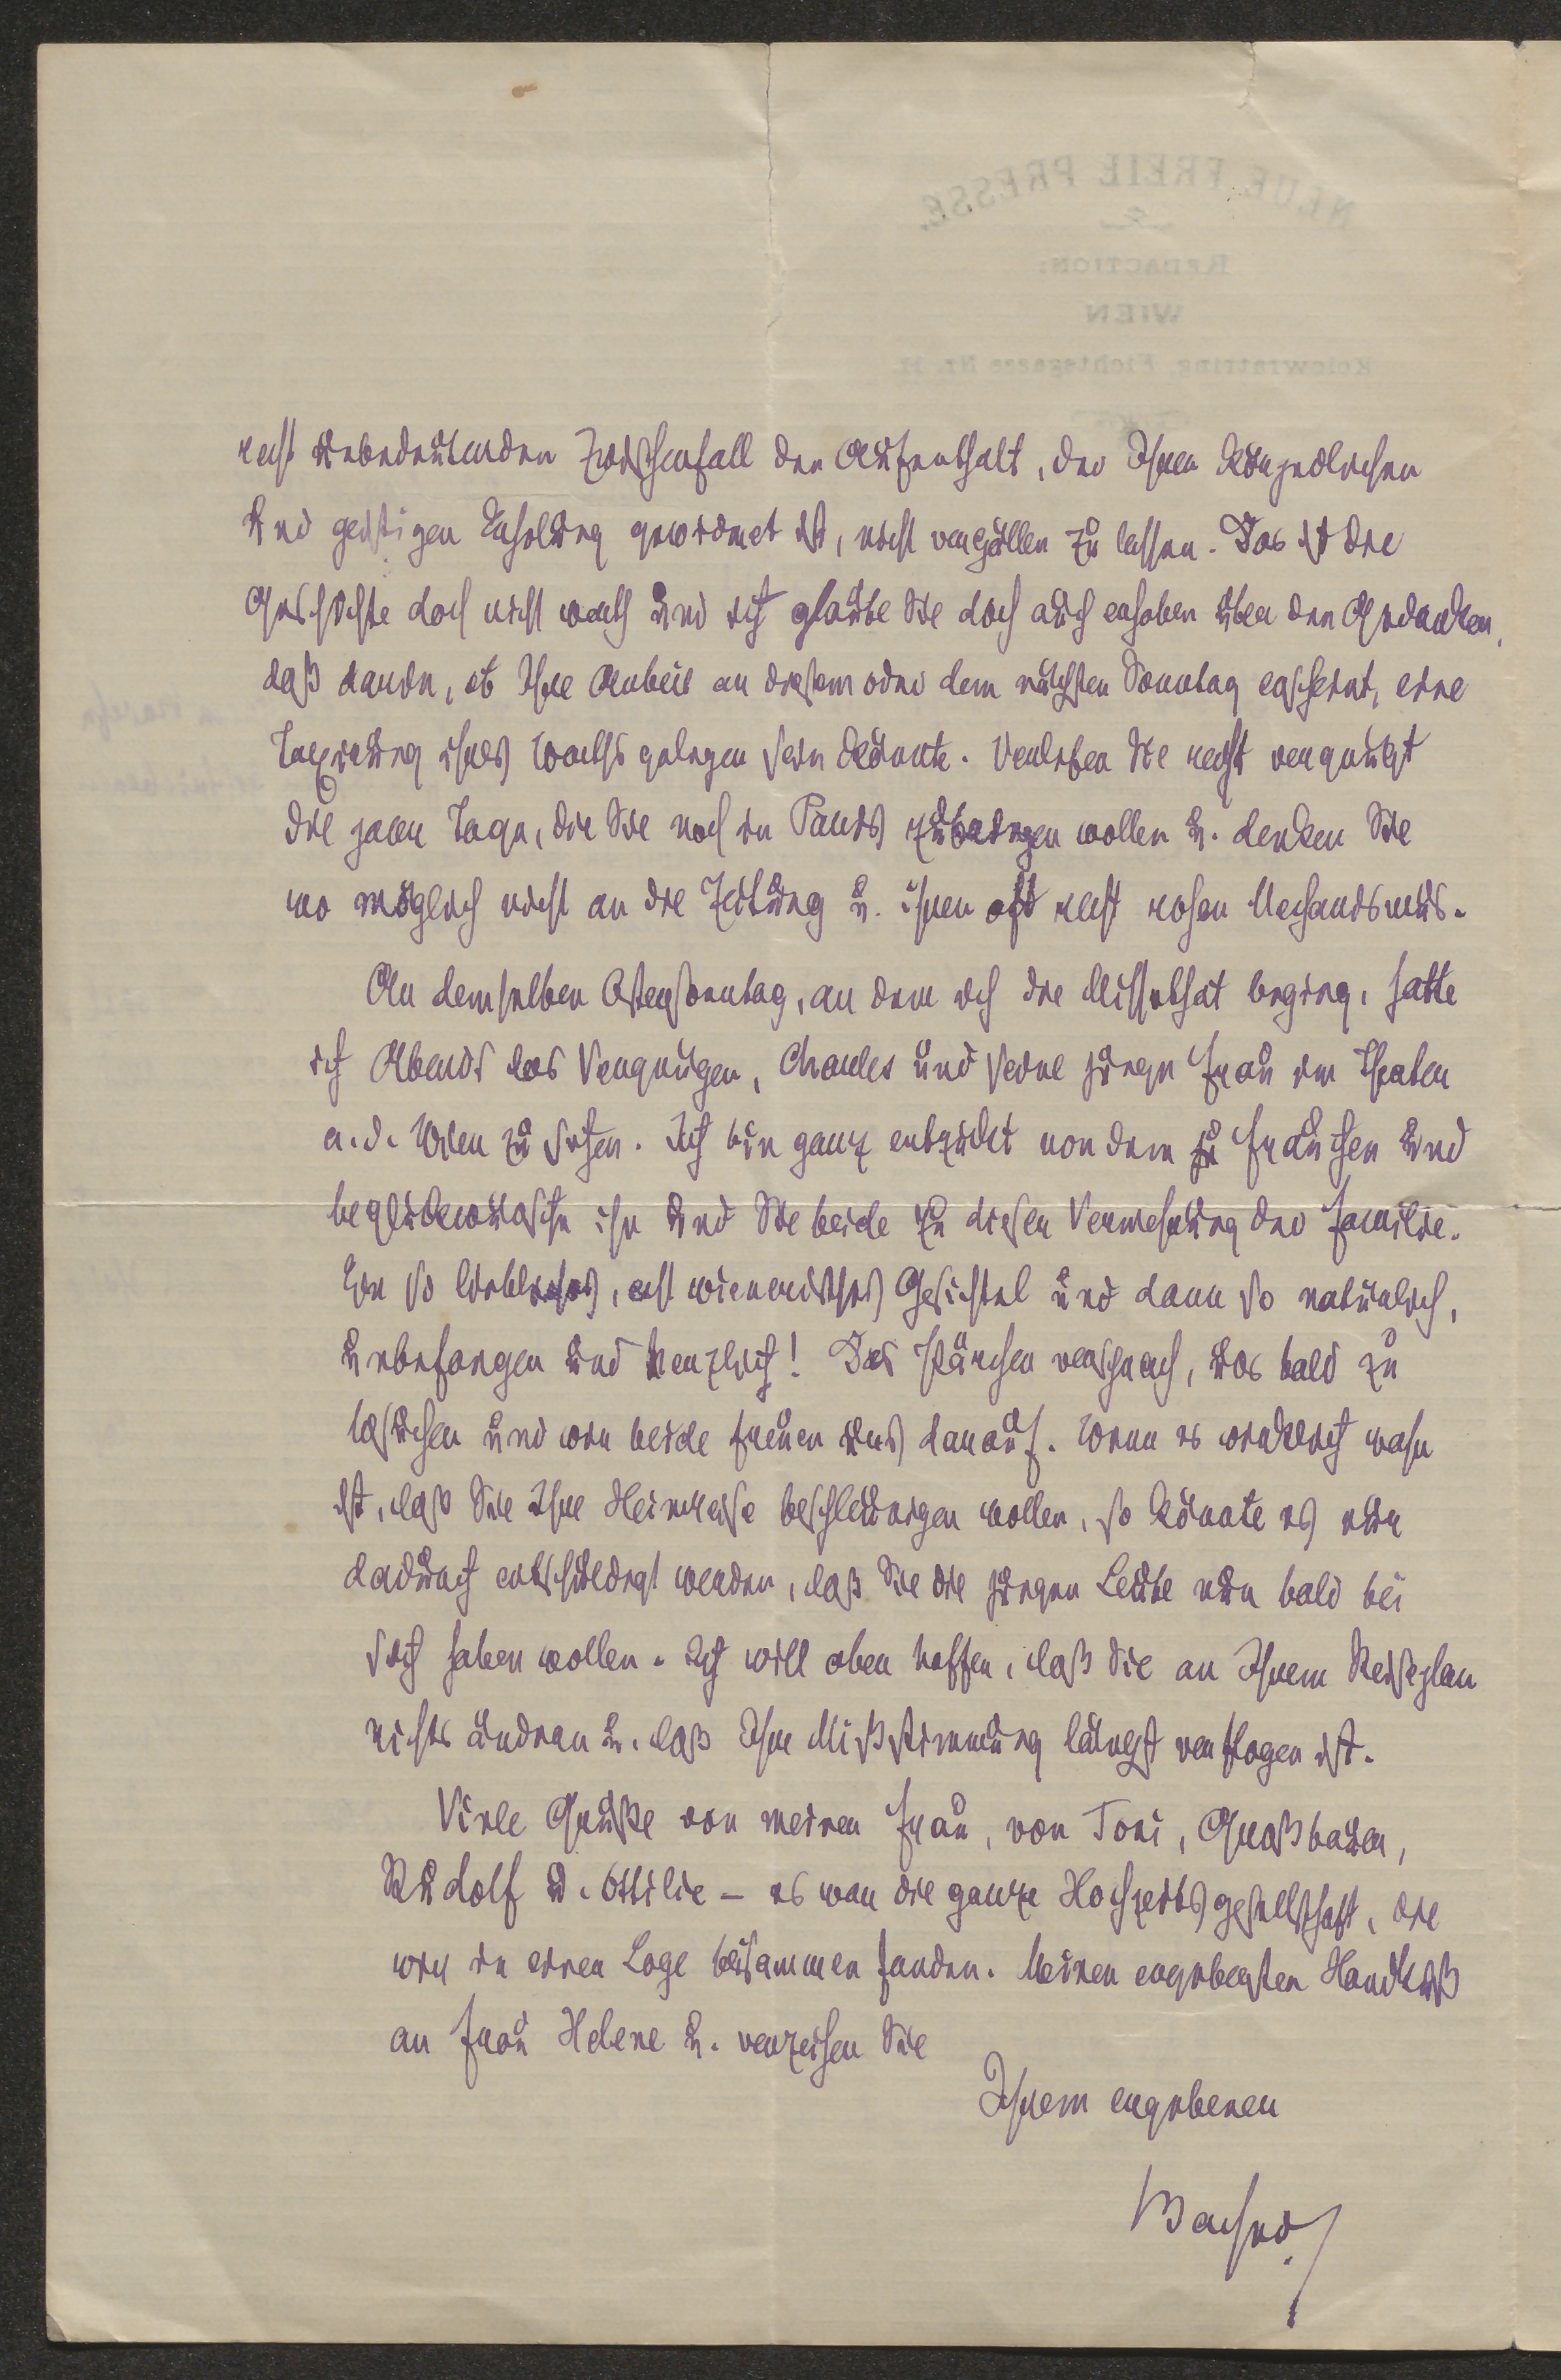 NEUE FREIE PRESSE
REDACTION:
WIEN
Kolowratring, Fichtegasse Nr. 11.
recht unbedeutenden Zwischenfall den Aufenthalt, der Ihrer körperlichen
und geistigen Erholung gewidmet ist, nicht vergällen zu lassen. Das ist die
Geschichte doch nicht werth und ich glaube Sie doch auch erhaben über den Gedanken,
daß darin, ob Ihre Arbeit an diesem oder dem nächsten Sonntag erscheint, eine
Taxirung ihres Werths gelegen sein könnte. Verleben Sie recht vergnügt
die paar Tage, die Sie noch in Paris zubringen wollen u. denken Sie
wo möglich nicht an die Zeitung u. ihren oft recht rohen Mechanismus.
An demselben Ostersonntag, an dem ich die Missethat beging, hatte
ich Abends das Vergnügen, Charles und seine junge Frau im Theater
a. d. Wien zu sehen. Ich bin ganz entzückt von dem Frauchen und
beglückwünsche ihn und Sie beide zu dieser Vermehrung der Familie.
Ein so liebliches, echt wienerisches Gesichtel und dann so natürlich,
unbefangen und herzlich! Das Pärchen versprach, uns bald zu
besuchen und wir beide freuen uns darauf. Wenn es wirklich wahr
ist, daß Sie Ihre Heimreise beschleunigen wollen, so könnte es nur
dadurch entschuldigt werden, daß Sie die jungen Leute nun bald bei
sich haben wollen. Ich will aber hoffen, daß Sie an Ihrem Reiseplan
nichts ändern u. daß Ihre Mißstimmung längst verflogen ist.
Viele Grüße von meiner Frau, von Toni, Großbauer,
Rudolf u. Ottilie – es war die ganze Hochzeitsgesellschaft, die
wir in einer Loge beisammen fanden. Meinen ergebensten Handkuß
an Frau Helene u. verzeihen Sie
Ihrem ergebenen
Bacher